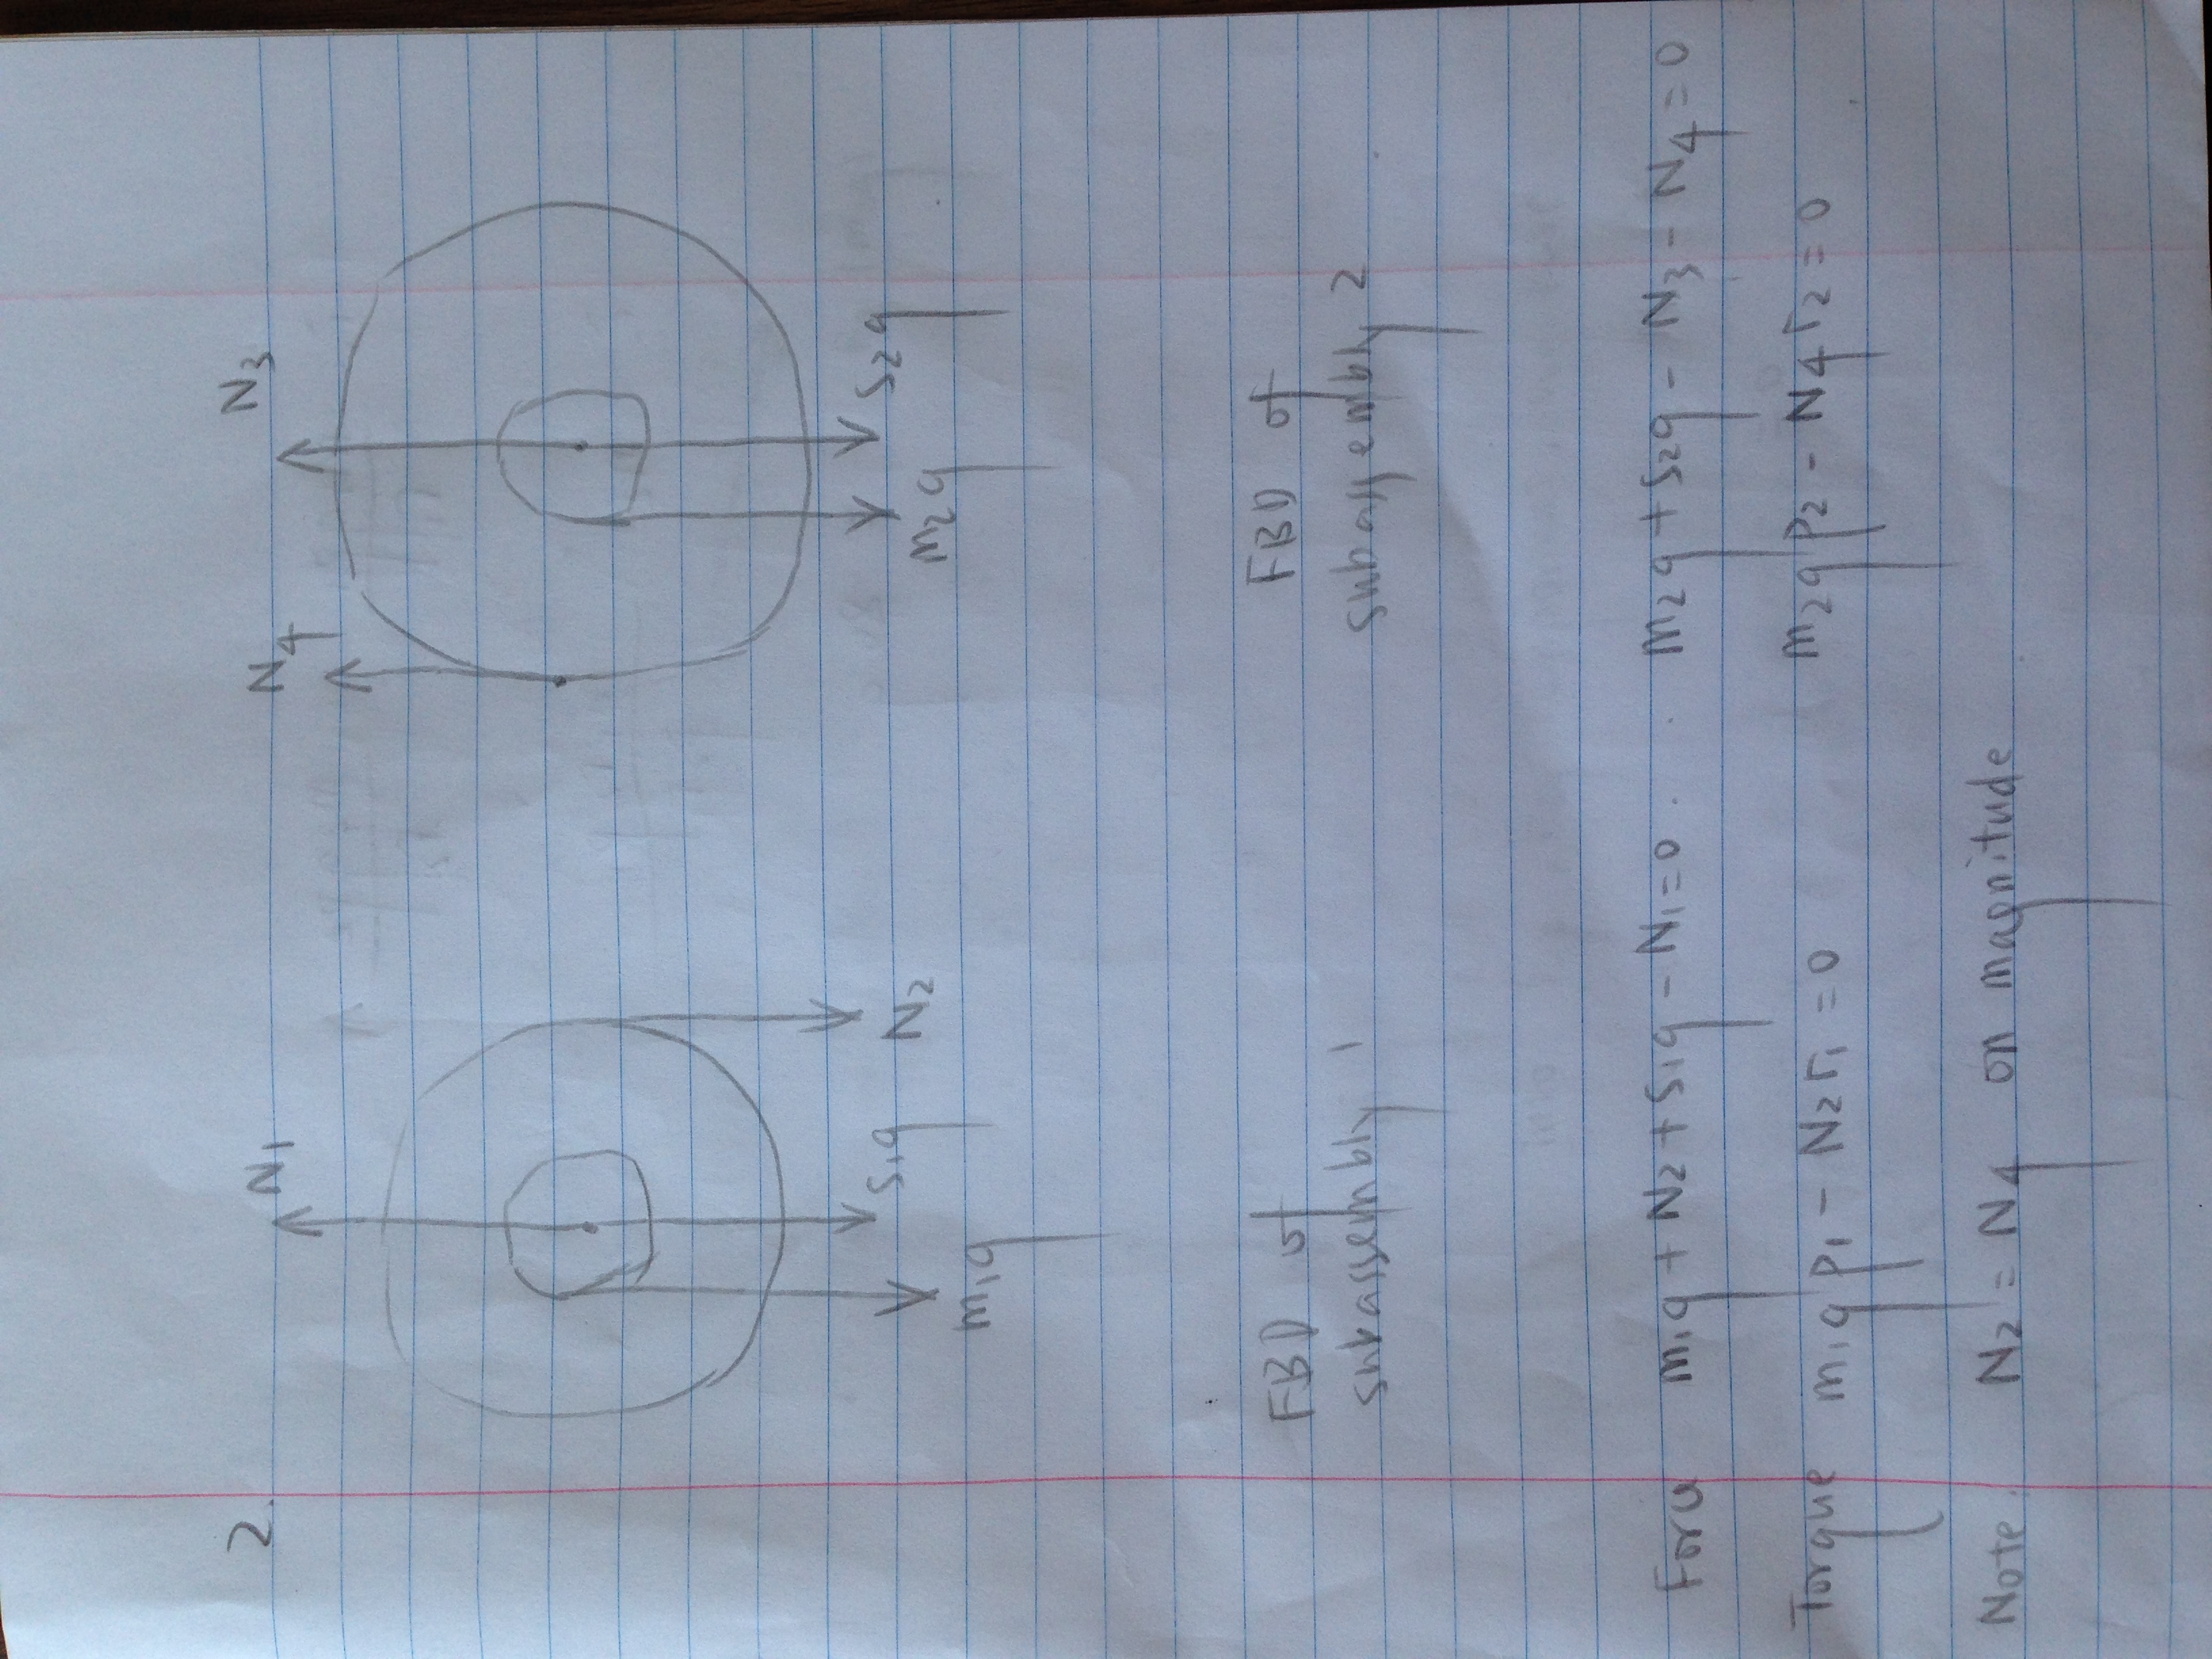 2.
N₁
N₄ N₃
m₁g s₁g N₂
m₂g s₂g
FBD of
subassembly 1
FBD of
subassembly 2
Force m₁g + N₂ + s₁g - N₁ = 0 m₂g + s₂g - N₃ - N₄ = 0
Torque m₁g p₁ - N₂ r₁ = 0 m₂g p₂ - N₄ r₂ = 0
Note: N₂ = N₄ on magnitude